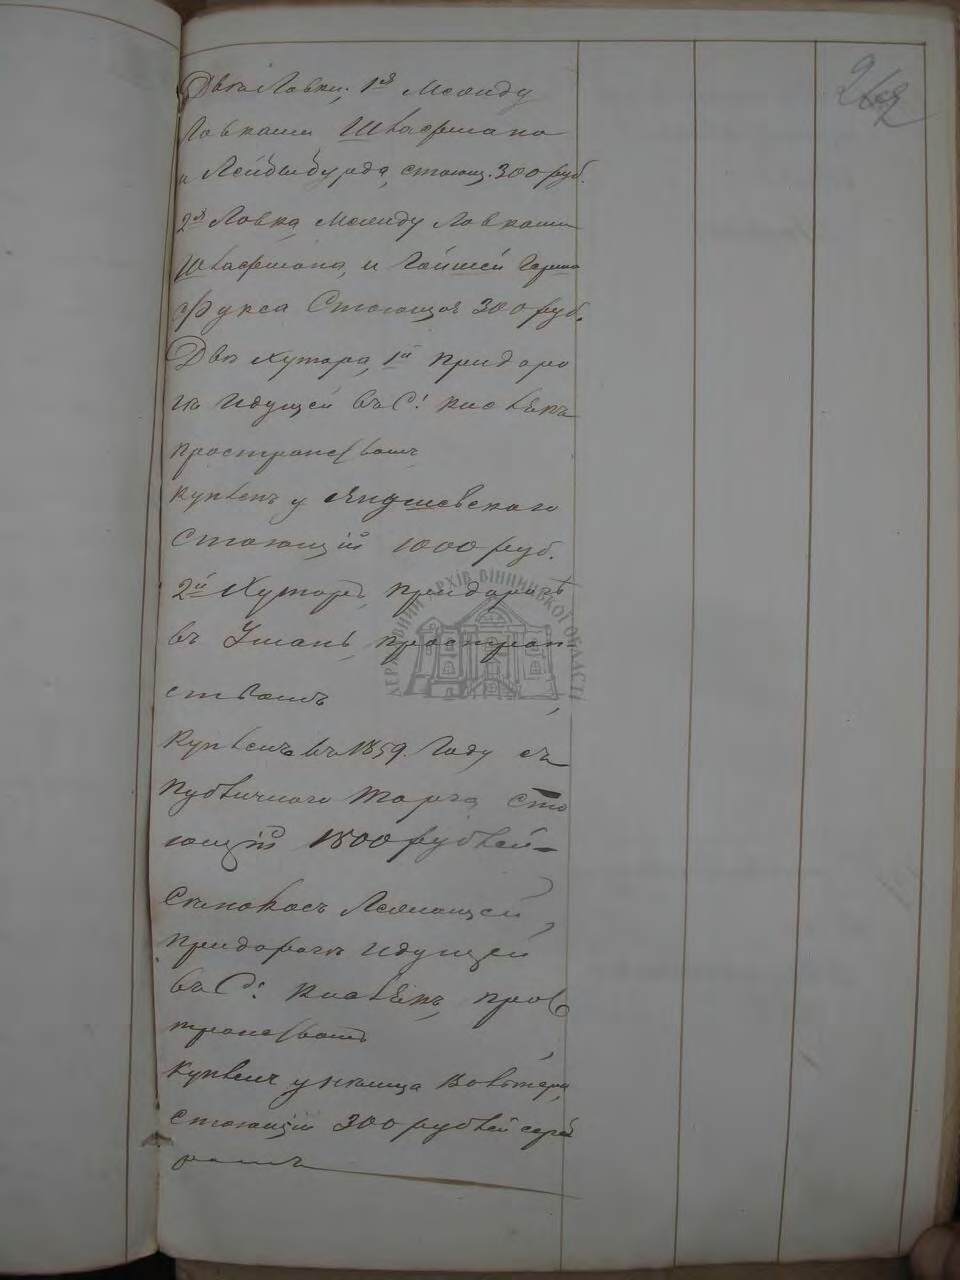 Две Лавки, 1я Между
Лавками Шваермана
и Лейзенбурда, стоющ. 300 руб.
2я Лавка, Между Лавками
Шваермана, и
Фукса Стоющая 300 руб.
Два Хутора, 1й при доро
ге идущей въ С!
пространствомъ
купленъ у Янушевскаго
Стоющій 1000 руб.
2й Хуторъ, при дороге
въ Умань, простран-
ствомъ,
Купленъ въ 1859. Году съ
публичного торга, сто
ющій 1500 рублей
Сенокосъ Лежащей,
при дороге идущей
въ С! прос
транствомъ,
купленъ у немца
стоющій 300 рублей сереб
ромъ
ДЕРЖАВНИЙ АРХІВ ВІННИЦЬКОЇ ОБЛАСТІ